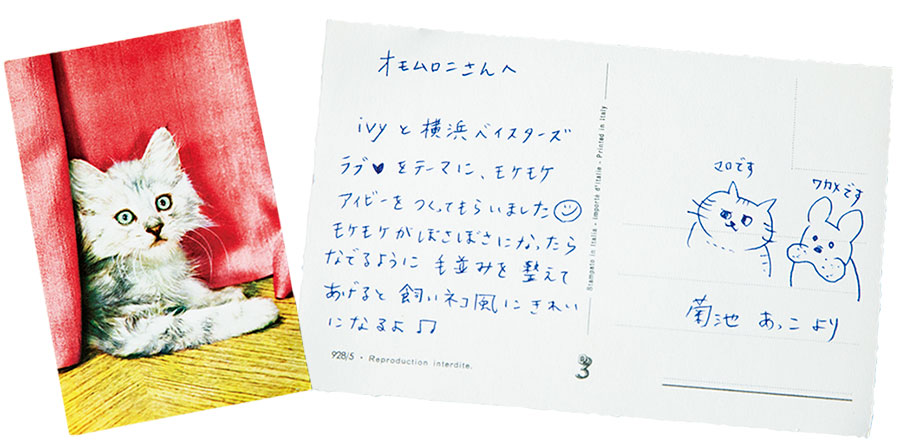 オモムロニさんへ
ivyと横浜ベイスターズ
ラブ♥をテーマに、モケモケ
アイビーをつくってもらいました☺
モケモケがぼさぼさになったら
なでるように毛並みを整えて
あげると飼いネコ風にきれい
になるよ♫
928/5 • Reproduction interdite.
Stampato in Italia - Importé d'Italie - Printed in Italy
マロです
ワカメです
菊池 あっこ より